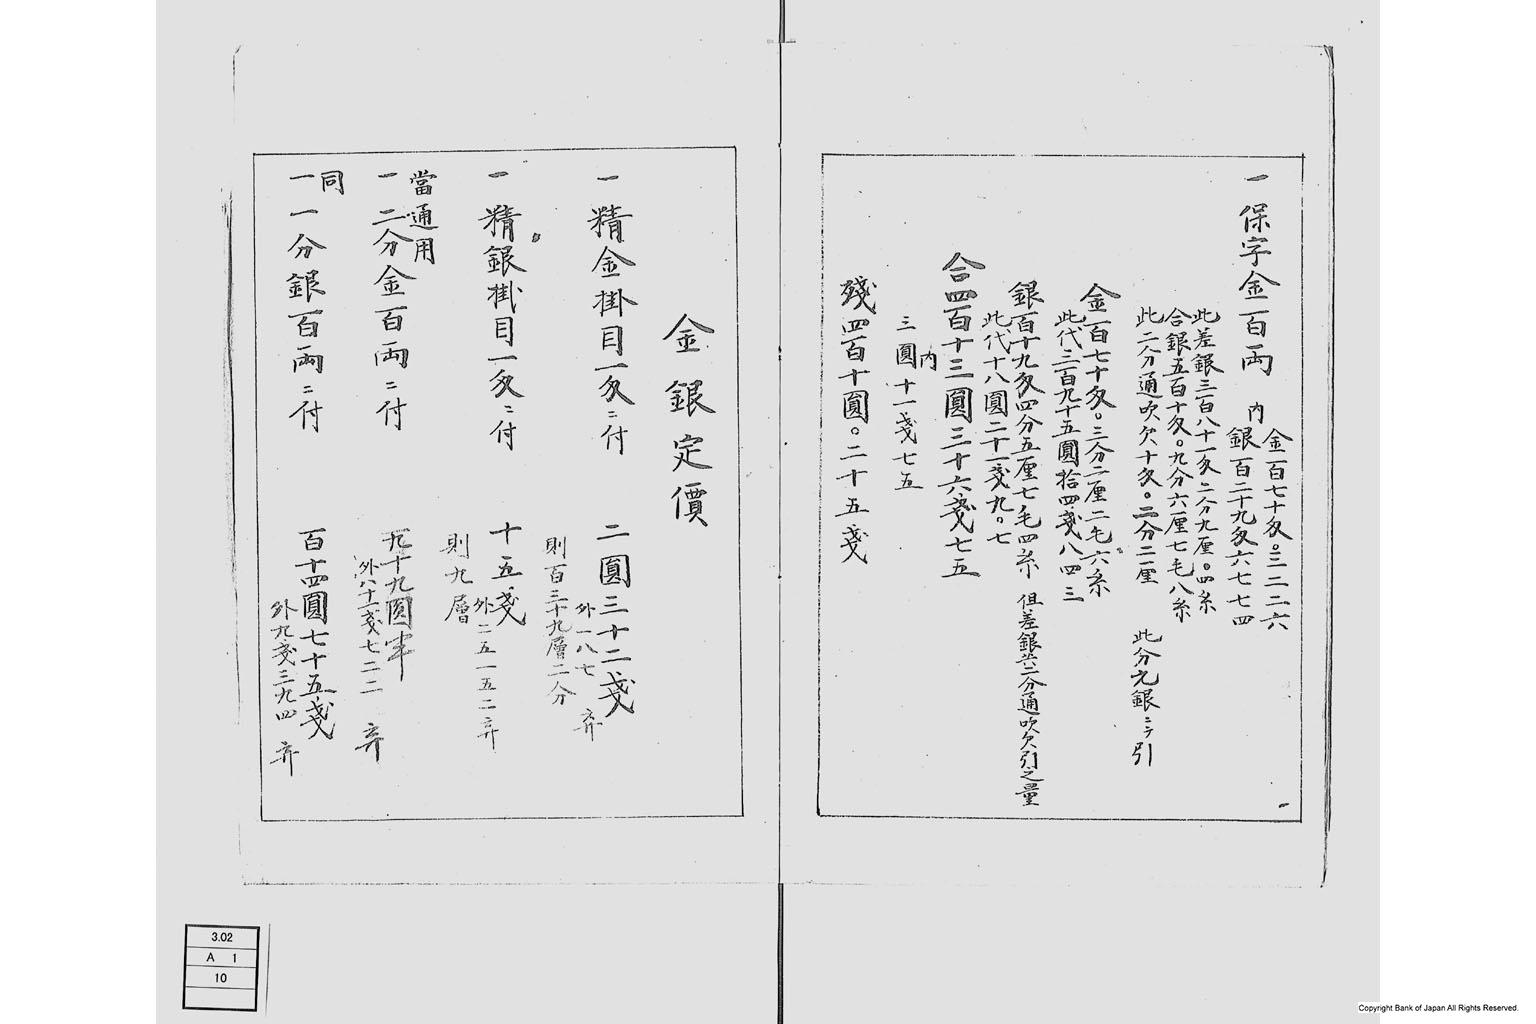 一 保字金一百両
内
金一百七十匁〇三二二六
銀一百二十九匁六七七四
此差銀三百八十一匁二分九厘〇四糸
合銀五百十匁〇九分六厘七毛八糸
此二分通吹欠十匁〇二分二厘
此分九銀ニテ引
金一百七十匁〇三分二厘二毛六糸
此代三百九十五圓拾四戔八四三
銀一百十九匁四分五厘七毛四糸
但差銀共二分通吹欠引之量
此代十八圓二十一戔九〇七
合四百十三圓三十六戔七五
内
三圓十一戔七五
殘四百十圓〇二十五戔
金銀定價
一 精金掛目一匁ニ付 二圓三十二戔
外一八七 弃
則百三十九層二分
一 精銀掛目一匁ニ付 十五戔
外二五一五二弃
則九層
當通用
一 二分金一百両ニ付 九十九圓半
外八十一戔七二二 弃
同
一 一分銀一百両ニ付 百十四圓七十五戔
外九戔三九四 弃
3.02
A 1
10
Copyright Bank of Japan All Rights Reserved.